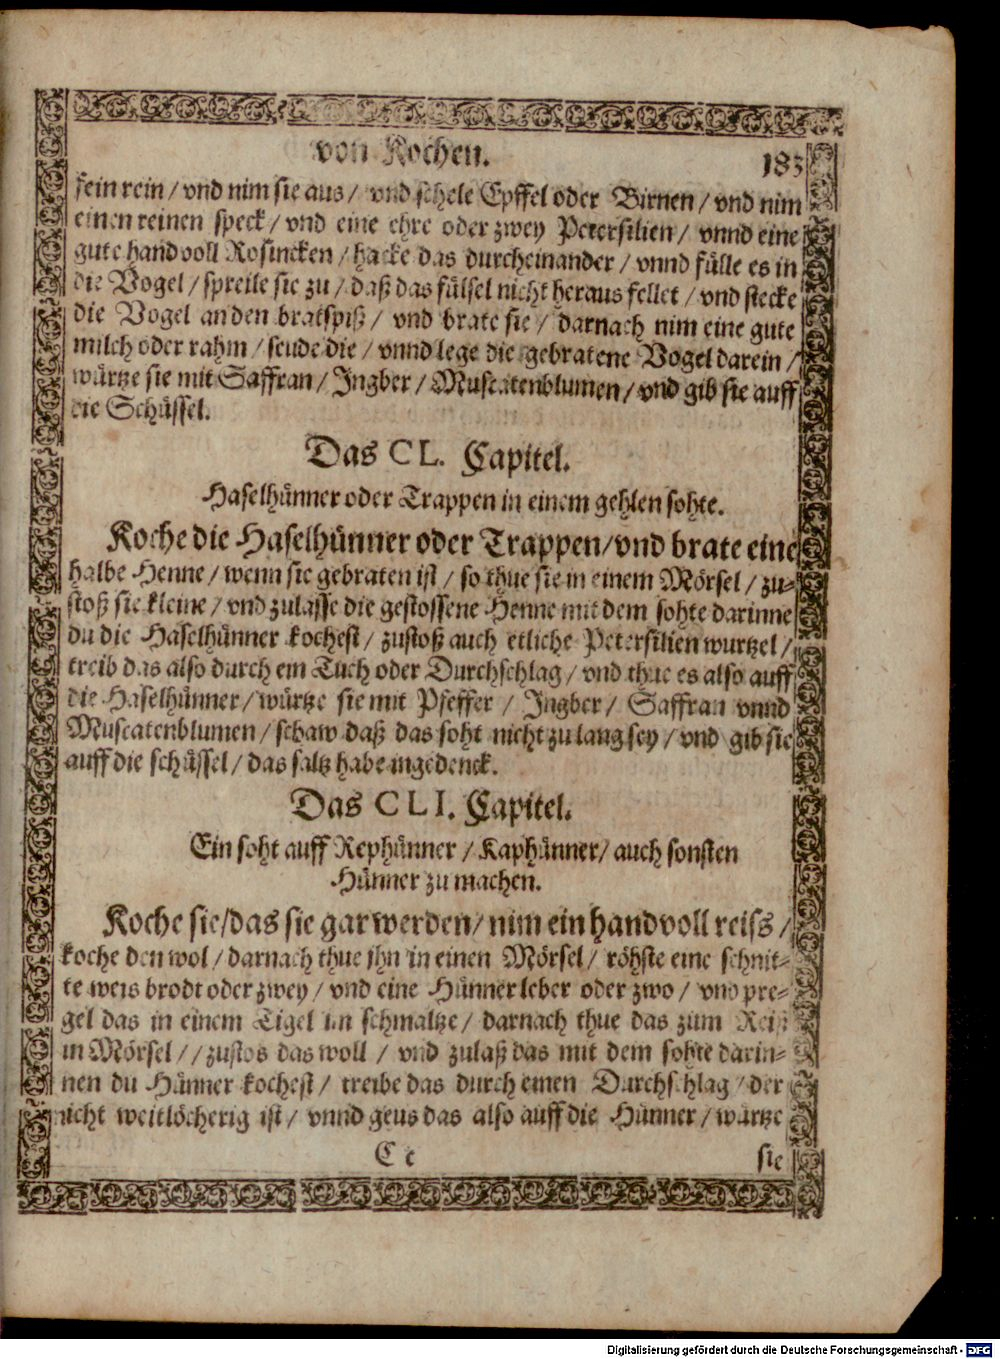 von Kochen. 183
fein rein / vnd nim sie aus / vnd schele Epffel oder Birnen / vnd nim
einen reinen speck / vnd eine ehre oder zwey Petersilien / vnnd eine
gute handvoll Rosincken / hacke das durcheinander / vnnd fülle es in
die Vogel / spreile sie zu / daß das fülsel nicht heraus fellet / vnd stecke
die Vogel an den bratspiß / vnd brate sie / darnach nim eine gute
milch oder rahm / seude die / vnnd lege die gebratene Vogel darein /
würtze sie mit Saffran / Ingber / Muscatenblumen / vnd gib sie auff
die Schüssel.
Das CL. Capitel.
Haselhünner oder Trappen in einem gehlen sohte.
Koche die Haselhünner oder Trappen / vnd brate eine
halbe Henne / wenn sie gebraten ist / so thue sie in einem Mörsel / zu-
stoß sie kleine / vnd zulasse die gestossene Henne mit dem sohte darinne
du die Haselhünner kochest / zustoß auch etliche Petersilien wurtzel /
treib das also durch ein Tuch oder Durchschlag / vnd thue es also auff
die Haselhünner / würtze sie mit Pfeffer / Ingber / Saffran vnnd
Muscatenblumen / schaw daß das soht nicht zu lang sey / vnd gib sie
auff die schüssel / das saltz habe ingedenck.
Das CLI. Capitel.
Ein soht auff Rephünner / Kaphünner / auch sonsten
Hünner zu machen.
Koche sie / das sie gar werden / nim ein handvoll reiss /
koche den wol / darnach thue ihn in einen Mörsel / röhste eine schnit-
te weis brodt oder zwey / vnd eine Hünner leber oder zwo / vnd pre-
gel das in einem Tigel im schmaltze / darnach thue das zum Reiß
in Mörsel / / zustos das woll / vnd zulaß das mit dem sohte darin-
nen du Hünner kochest / treibe das durch einen Durchschlag / der
nicht weitlöcherig ist / vnnd geus das also auff die Hünner / würtze
C c sie
Digitalisierung gefördert durch die Deutsche Forschungsgemeinschaft - DFG